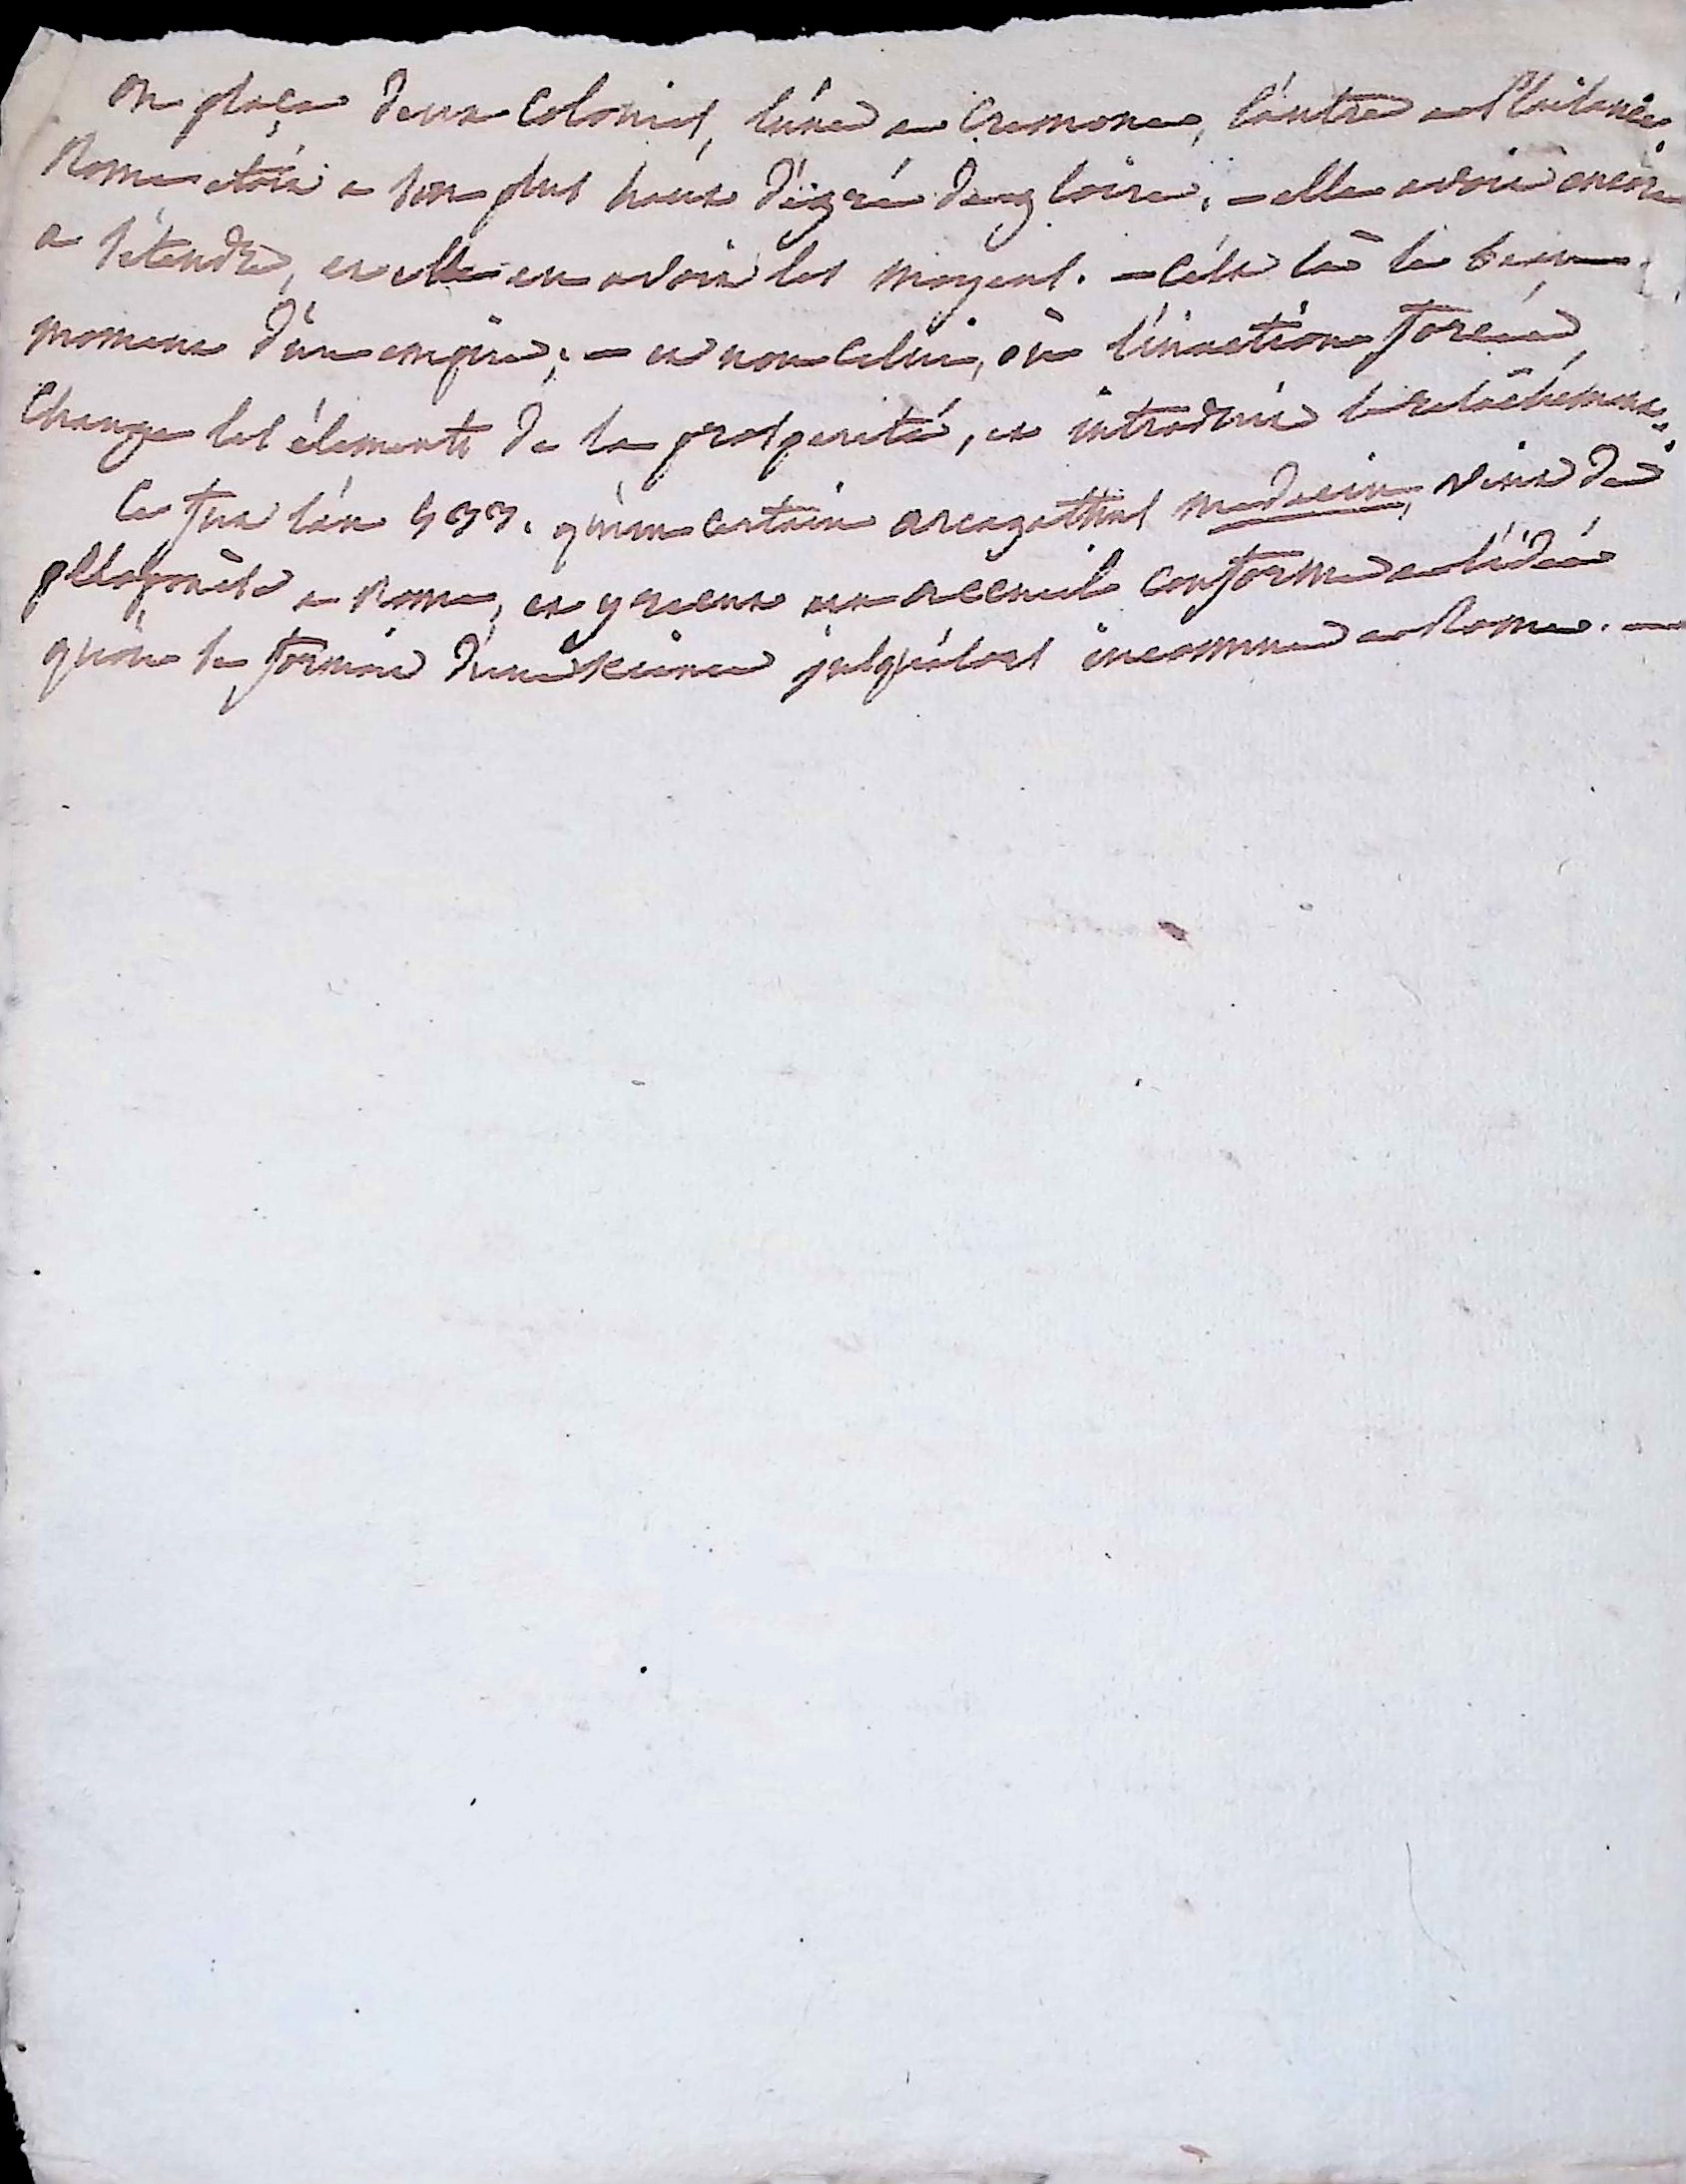 On plaça deux colonies, l'une a Cremone, l'autre a Plaisance
Rome etoit a son plus haut dégré de gloire, - elle avoit encore
a s'étendre, et elle en avoit les moyens. - C'est là le beau
moment d'un empire, - et non celui, où l'inaction forcée,
change les élements de la prosperité, et introduit le relâchement.
Ce fut l'an 533. qu'un certain arcagathus medecin, vint du
peloponèse a Rome, et y recut un accueil conforme a l'idée
qu'on se formoit d'une science jusqu'alors inconnue a Rome. -